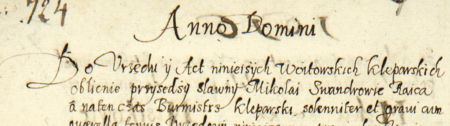 724
Anno Domini
Do Vrzędu y Act ninieiszych Woitowskich kleparskich
oblicnie przyszedszy sławny Mikolai Raica
a naten czas Burmistrz kleparski, solenniter et gravi cum